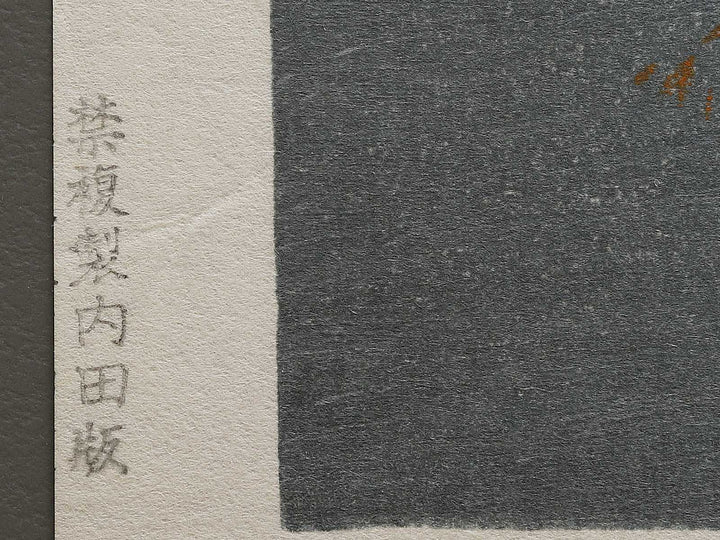 禁複製内田版